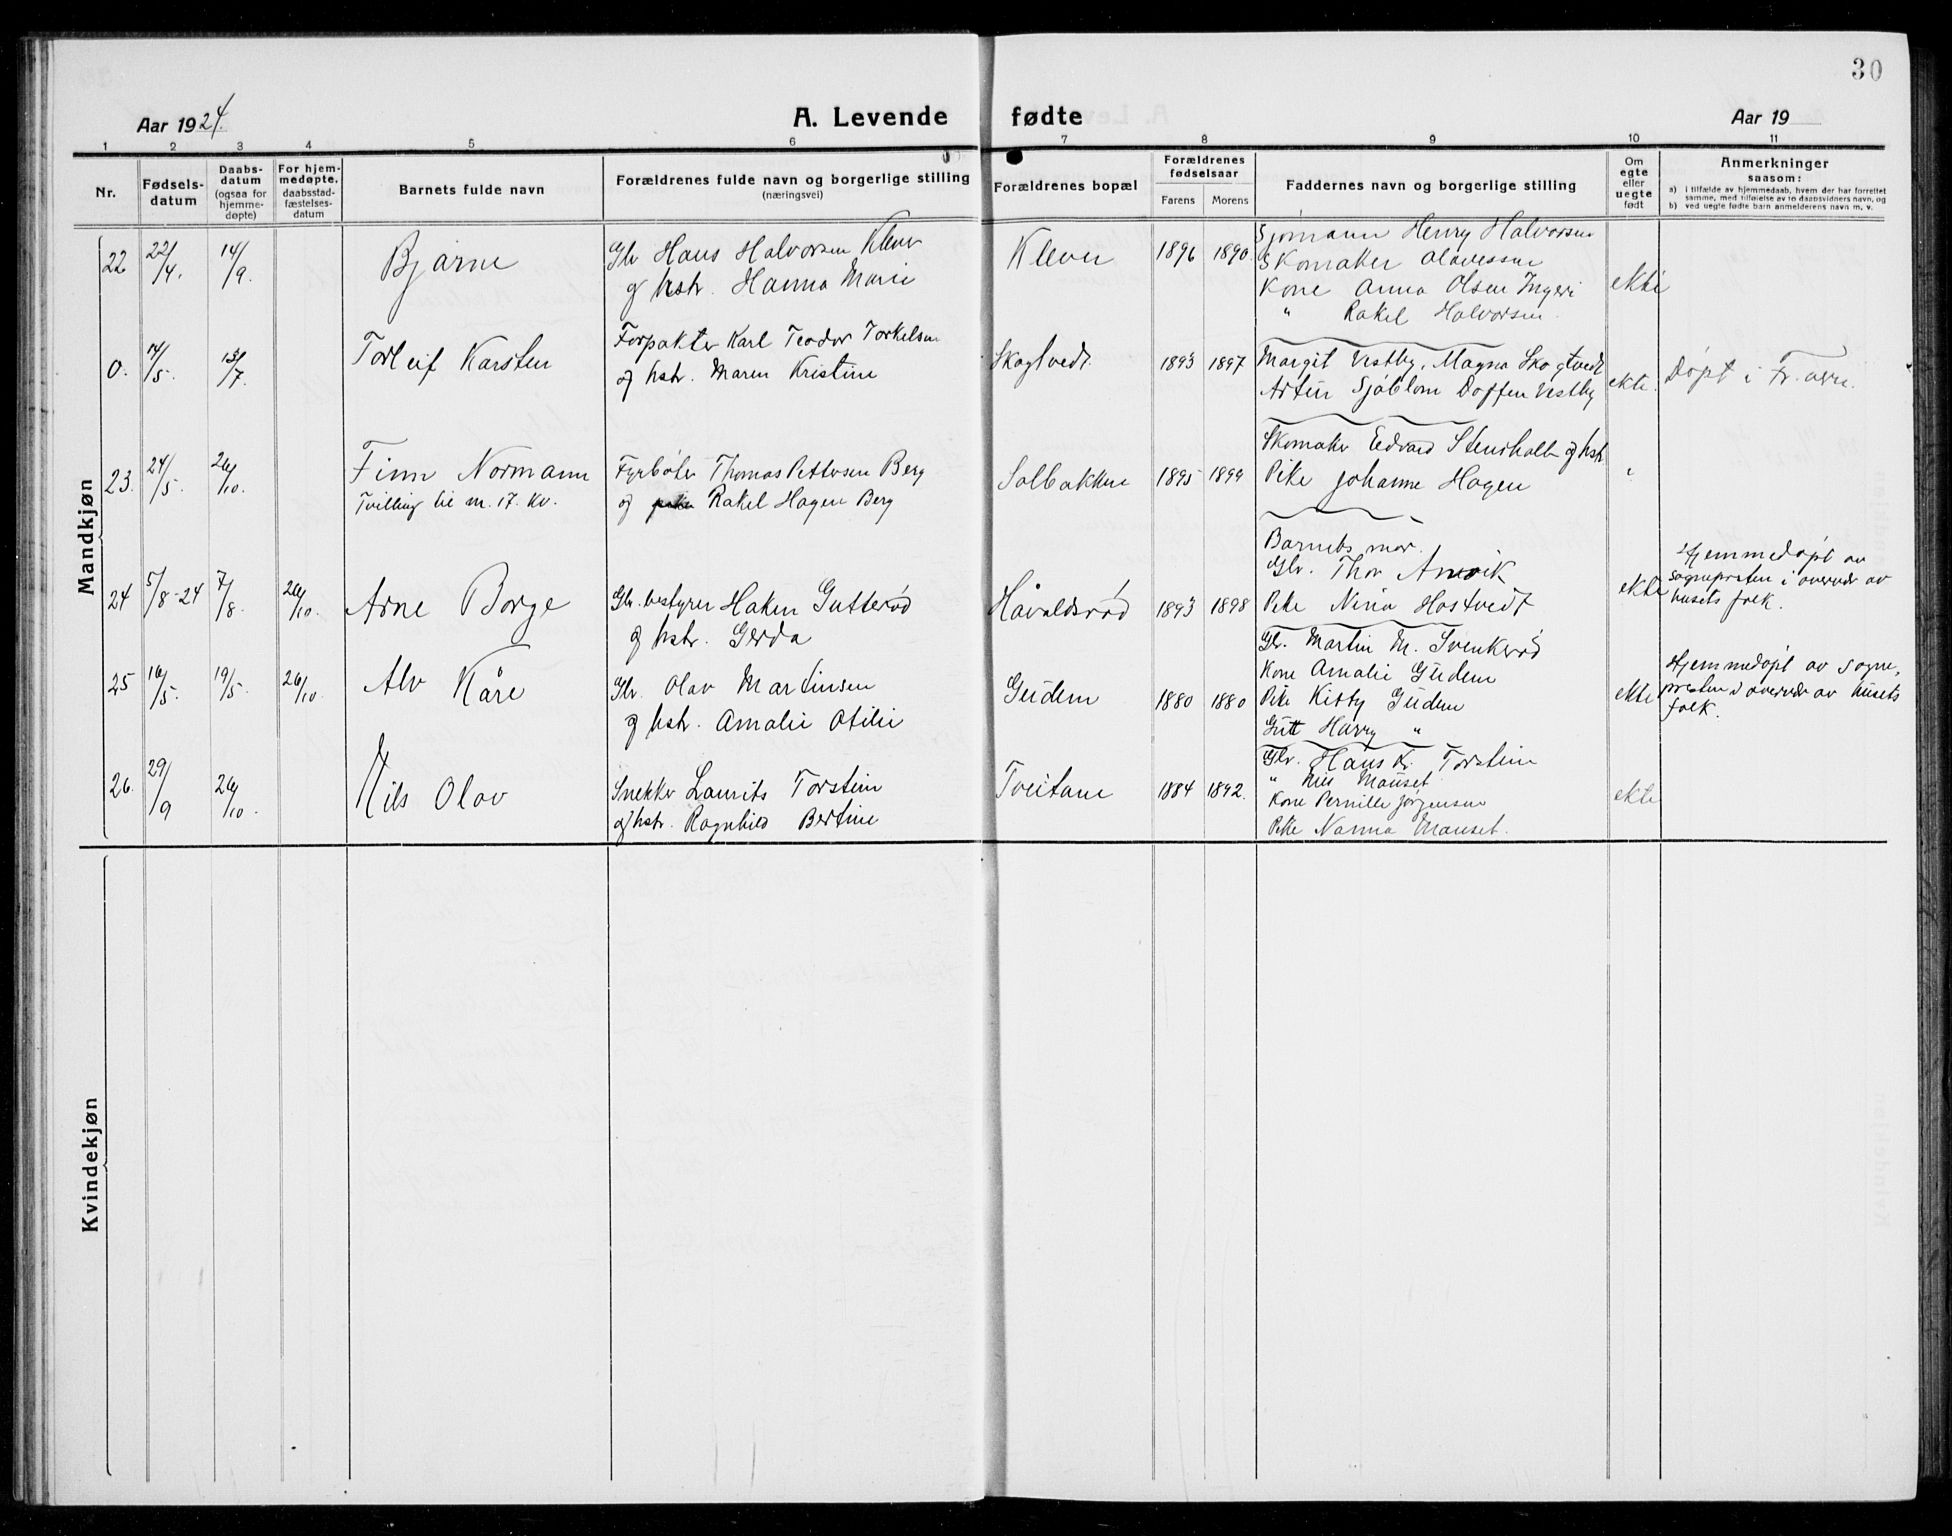 30
Aar 1924.
A. Levende fødte
Aar 19
1 2 3 4 5 6 7 8 9 10 11
Nr.
Fødsels-
datum
Daabs-
datum
(ogsaa for
hjemme-
døpte)
For hjem-
medøpte,
daabsstad-
fæstelses-
datum
Barnets fulde navn
Forældrenes fulde navn og borgerlige stilling
(næringsvei)
Forældrenes bopæl
Forældrenes
fødselsaar
Farens Morens
Faddernes navn og borgerlige stilling
Om
egte
eller
uegte
født
Anmerkninger
saasom:
a) i tilfælde av hjemmedaab, hvem der har forrettet
samme, med tilføielse av to daabsvidners navn, og
b) ved uegte fødte barn anmelderens navn m. v.
Mandkjøn
22 22/4. 14/9. Bjarne
Gbr Hans Halvorsen Klever
og hstr. Hanna Marie
Klever 1896 1890
Sjømann Henry Halvorsen
Skomaker
Kone Anna Olsen Ingeri
" Rakel Halvorsen
ekte
0. 14/5. 13/7. Torleif Karsten
Forpakter Karl Teodor Torkelsen
og hstr. Maren Kristine
Skogtvedt 1893 1897
Margit Vestby, Magna Skogtvedt
Artur Sjöblom Doffen Vestby
ekte. Døpt i
23. 24/5. 26/10. Finn Normann
Tvilling til m. 17. kv.
Fyrbøter Thomas Pettersen Berg
og Rakel Hagen Berg
Solbakken 1895 1899
Skomaker Edvard Stensholt og hstr
Pike Johanne Hagen
"
24 5/8-24 7/8. 26/10. Arne Borge
Gbr. bestyrer Haken Gutterød
og hstr. Gerda
Håvaldsrød 1893 1898
Barnets mor.
Gbr. Thor
Pike Nina Hostvedt
ekte
Hjemmedøpt av
sognepresten i overvær av
husets folk.
25 16/5. 19/5. 26/10. Alv Kåre
Gbr. Olav Martinsen
og hstr. Amalie Otilie
Gudem 1880 1880
Gbr. Martin M. Svenkerød
Kone Amalie Gudem
Pike Kitty Gudem
Gutt Harry "
ekte
Hjemmedøpt av sogne-
presten i overvær av husets
folk.
26. 29/9 26/10. Nils Olav
Snekker Laurits Torstein
og hstr. Ragnhild Bertine
Tveitane 1884 1892.
Gbr. Hans Kr. Torstein
" Nils Mauset
Kone Pernille Jørgensen
Pike Nanna Mauset.
ekte
Kvindekjøn